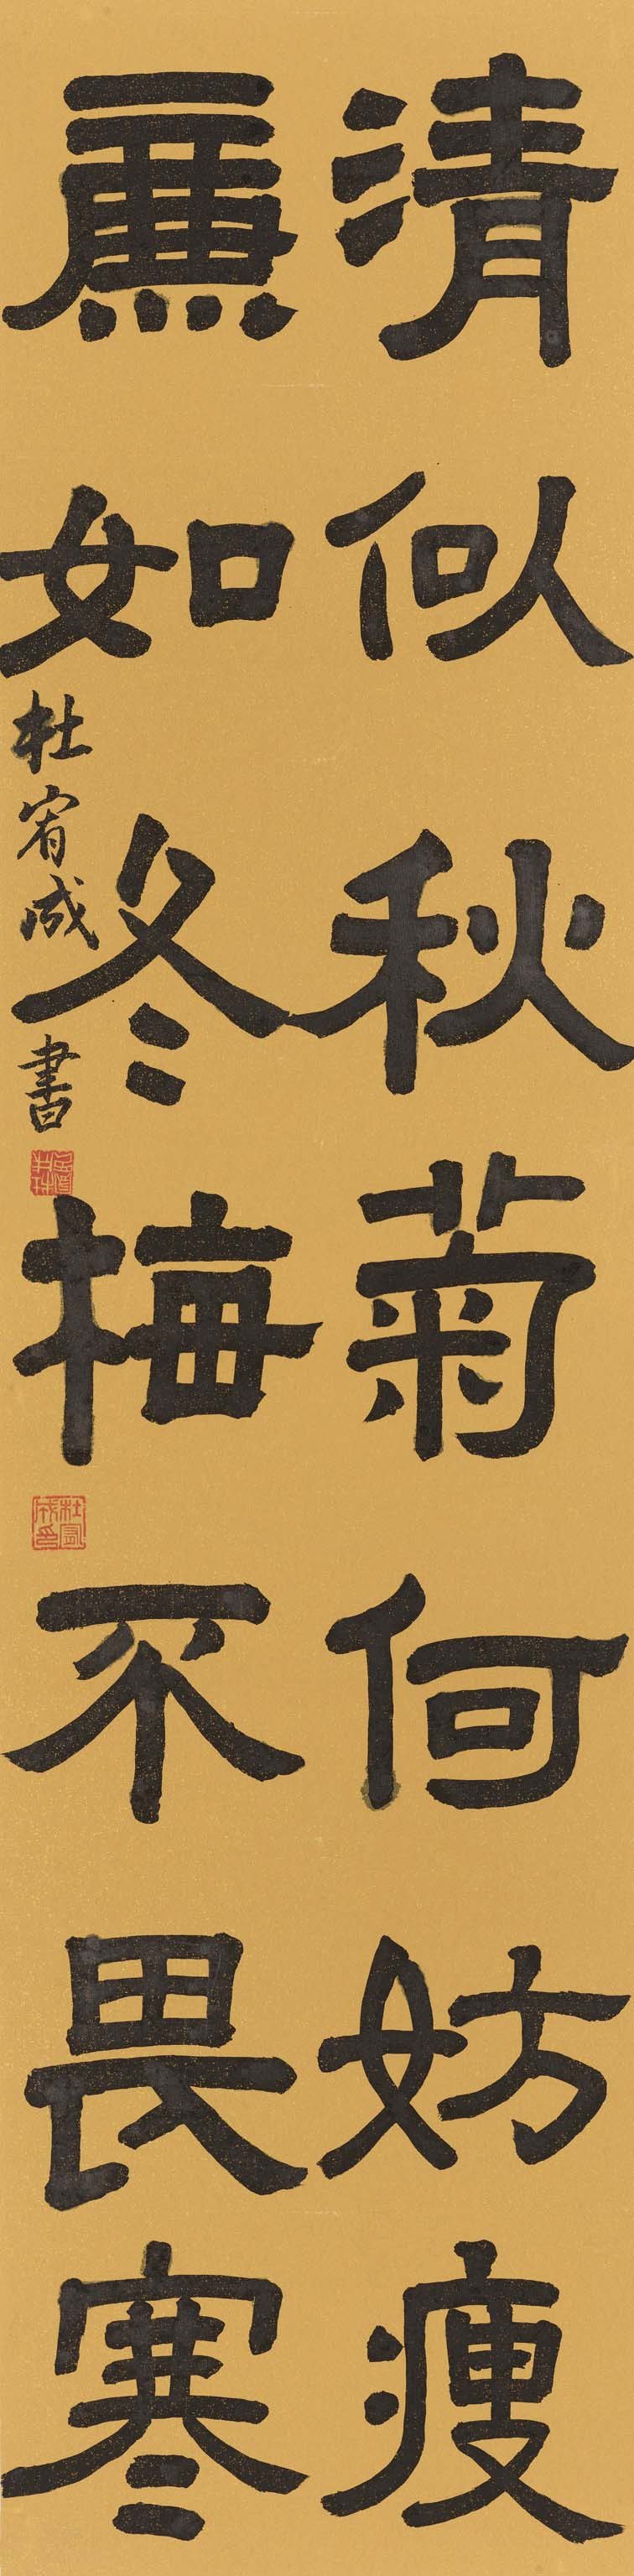 清似秋菊何妨瘦
廉如冬梅不畏寒
杜宥成書